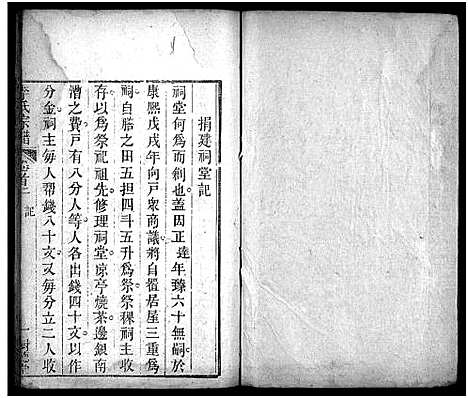 捐建祠堂記
祠堂何為而剏也蓋因正達年臻六十無嗣於
康熙戊戌年向戸衆商議將自置居屋三重為
祠自膳之田五担四斗五升為祭祭稞祠主所
存以為祭祀祖先修理祠堂凉亭燒茶邊銀南
漕之費戸有八分人等人各出錢四十文以作
分金祠主每人帮錢八十文又每分立二人收
李氏宗譜
卷首二
記
一